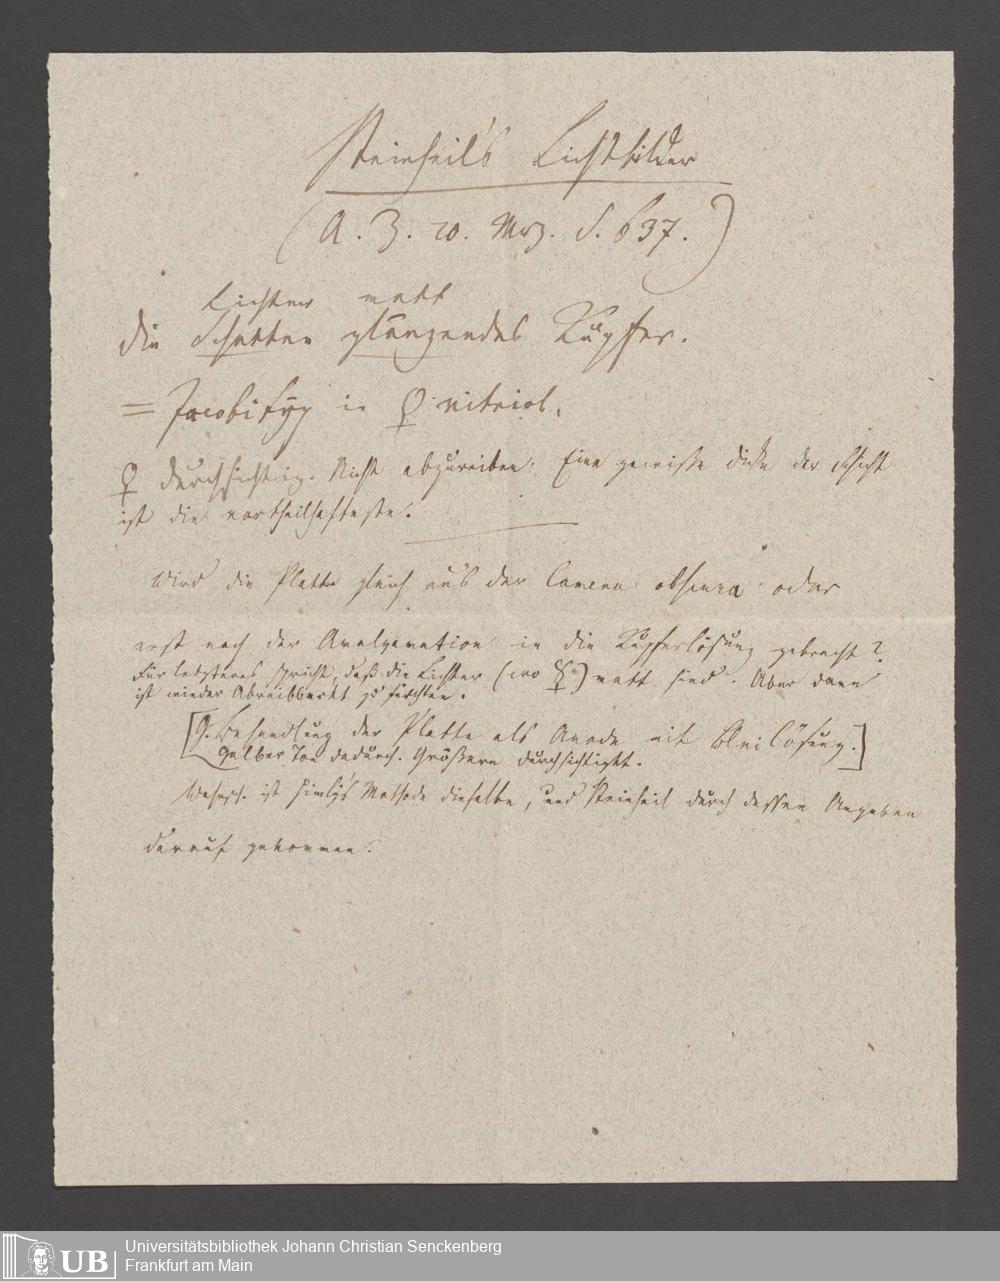 Steinheil's Lichtbilder
(A. Z. 20. Mrz. S. 637.)
Lichter matt
die Schatten glänzendes Kupfer.
= Jacobityp in ♀ vitriol.
♀ durchsichtig. Nicht abzureiben. Eine gewisse Dicke der Schicht
ist die vortheilhafteste.
Wird die Platte gleich aus der Camera obscura oder
erst nach der Amalgamation in die Kupferlösung gebracht?
Für letzteres spricht, daß die Lichter (wo ☿) matt sind. Aber dann
ist wieder Abreibbarkt zu fürchten.
[G. Behandlung der Platte als Anode mit Bleilösung.]
Gelber Ton dadurch. Größere Durchsichtigkt.
Wahrsch. ist Himly's Methode dieselbe, und Steinheil durch dessen Angaben
darauf gekommen.
UB
Universitätsbibliothek Johann Christian Senckenberg
Frankfurt am Main